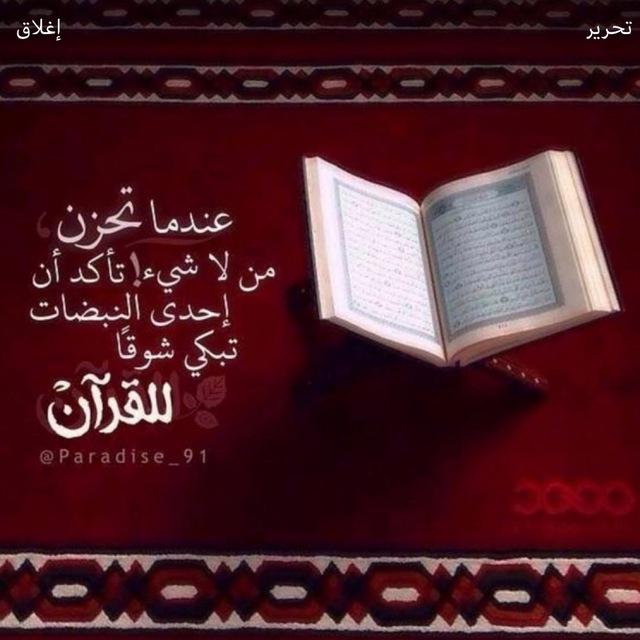 تحرير
إغلاق
عندما تحزن
من لا شيء! تأكد أن
إحدى النبضات
تبكي شوقًا
للقرآن
@Paradise_91